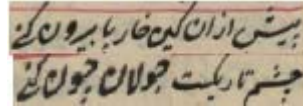 پیش ازان کین خار پا بیرون کنے
چشم تاریکست جولان چون کنے